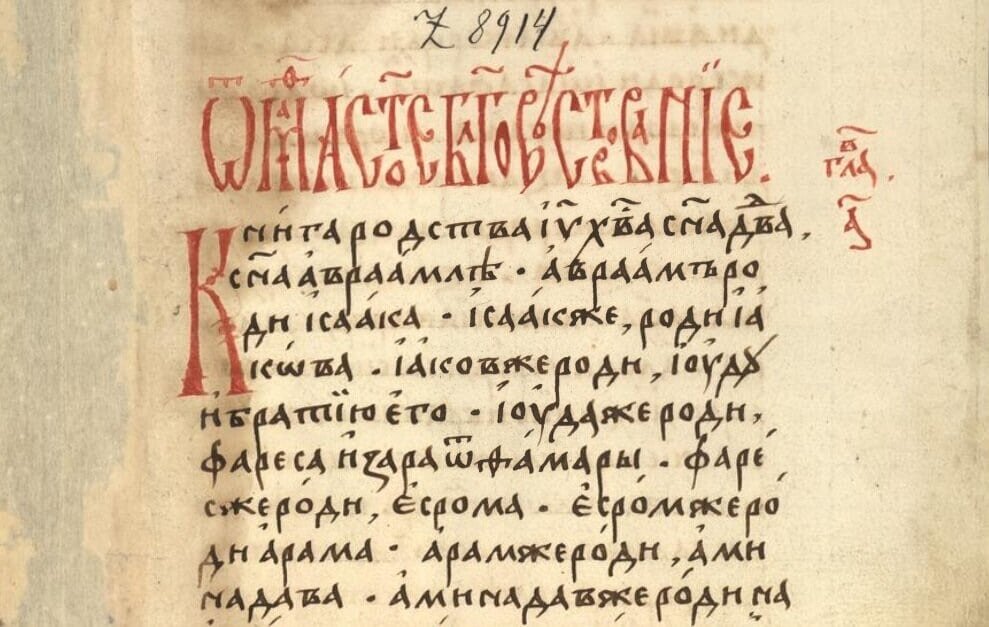 Z 8914
Ѿ маⷴ҇ стое бл҃говѣствованїе.
в҃ гла҃.
а҃
Книга родства і҃ѵ хв҃а сн҃а дв҃да,
сн҃а а́враа́млѣ · а́враа́мъ ро
ди і҆саа́ка · і҆саа́кже, роди і҆а́
кѡ́ва . і҆а́ковже роди , і҆ꙋдꙋ
и҆ братїю е҆го · і҆ꙋ́даже роди,
фареса и҆ зара ѿ ѳа́мары . фаре́
сже ро́ди, є҆срома . є҆сро́мже ро́
ди а҆рама · а҆рамже ро́ди , а҆ми
надава . а҆минадавже ро́ди на